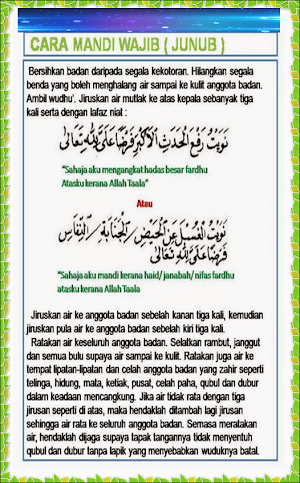 CARA MANDI WAJIB ( JUNUB )
Bersihkan badan daripada segala kekotoran. Hilangkan segala
benda yang boleh menghalang air sampai ke kulit anggota badan.
Ambil wudhu'. Jiruskan air mutlak ke atas kepala sebanyak tiga
kali serta dengan lafaz niat :
نَوَيْتُ رَفْعَ الْحَدَثِ الْأَكْبَرِ فَرْضًا عَلَيَّ لِلّٰهِ تَعَالَى
"Sahaja aku mengangkat hadas besar fardhu
Atasku kerana Allah Taala"
Atau
نَوَيْتُ الْغُسْلَ عَنِ الْحَيْضِ / الْجَنَابَةِ / النِّفَاسِ
فَرْضًا عَلَيَّ لِلّٰهِ تَعَالَى
"Sahaja aku mandi kerana haid/ janabah/ nifas fardhu
atasku kerana Allah Taala
Jiruskan air ke anggota badan sebelah kanan tiga kali, kemudian
jiruskan pula air ke anggota badan sebelah kiri tiga kali.
Ratakan air keseluruh anggota badan. Selatkan rambut, janggut
dan semua bulu supaya air sampai ke kulit. Ratakan juga air ke
tempat lipatan-lipatan dan celah anggota badan yang zahir seperti
telinga, hidung, mata, ketiak, pusat, celah paha, qubul dan dubur
dalam keadaan mencangkung. Jika air tidak rata dengan tiga
jirusan seperti di atas, maka hendaklah ditambah lagi jirusan
sehingga air rata ke seluruh anggota badan. Semasa meratakan
air, hendaklah dijaga supaya tapak tangannya tidak menyentuh
qubul dan dubur tanpa lapik yang menyebabkan wuduknya batal.